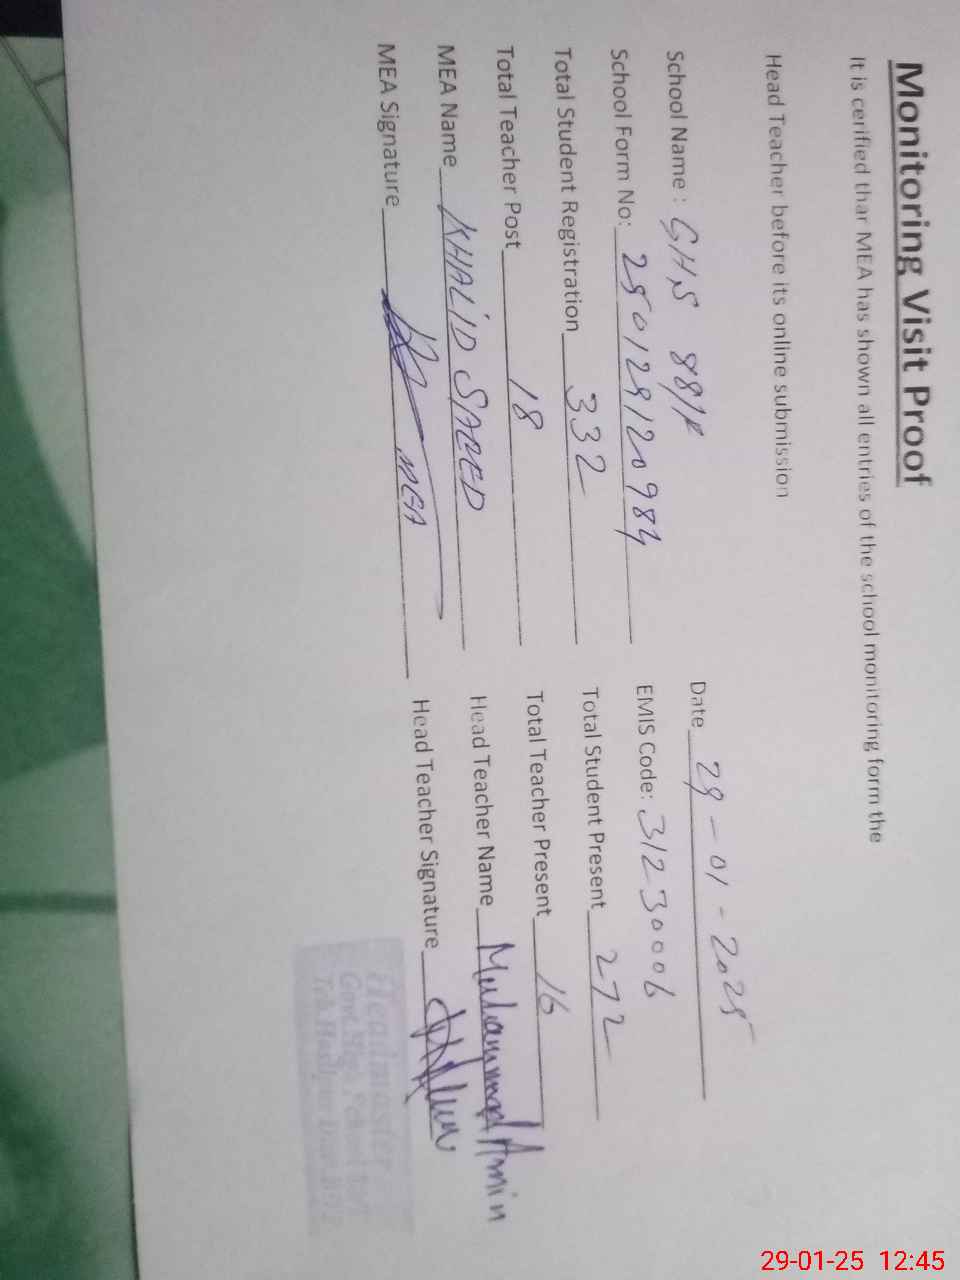 Monitoring Visit Proof
It is cerified thar MEA has shown all entries of the school monitoring form the
Head Teacher before its online submission
Date 29-01-2025
School Name : GHS 88/F
School Form No: 250129120984
EMIS Code: 31230006
Total Student Registration 332
Total Student Present 272
Total Teacher Post 18
Total Teacher Present 16
MEA Name KHALID SAEED
Head Teacher Name Muhammad Amin
MEA Signature MEA
Head Teacher Signature
Headmaster
29-01-25 12:45